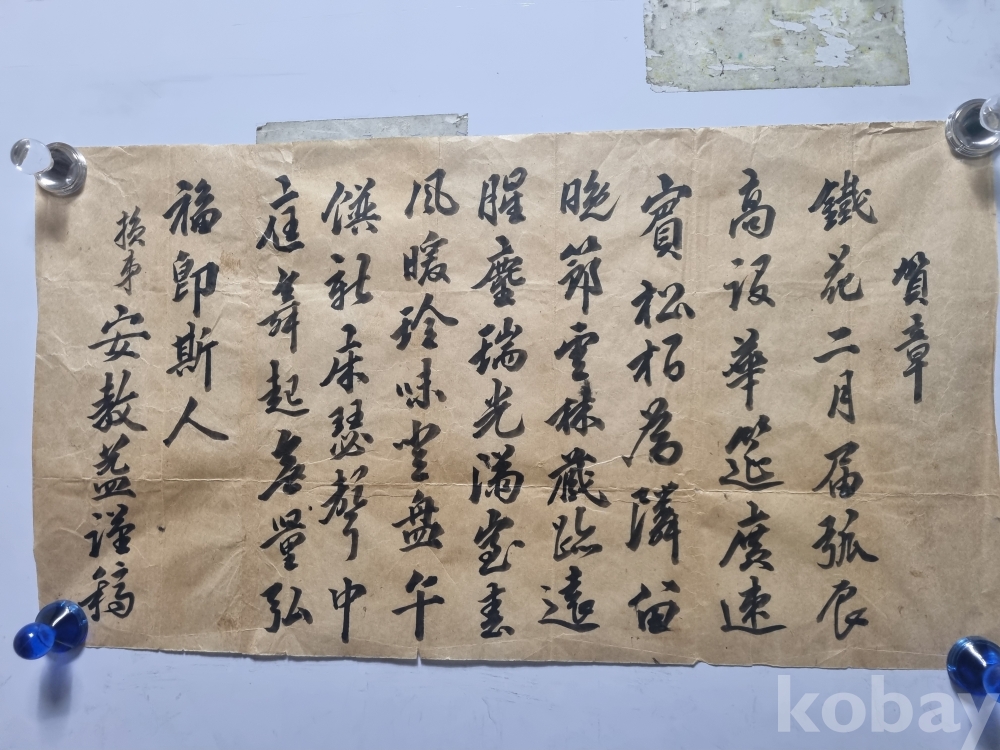 賀章
鐵花二月届弧辰
高設華筵廣速
賓松栢為隣留
晩節雲林藏跡遠
腥塵瑞光滿室春
風暖珍味登盤午
饌新床瑟聲中
庭舞起無量弘
福卽斯人
損弟安敎益謹稿
kobay